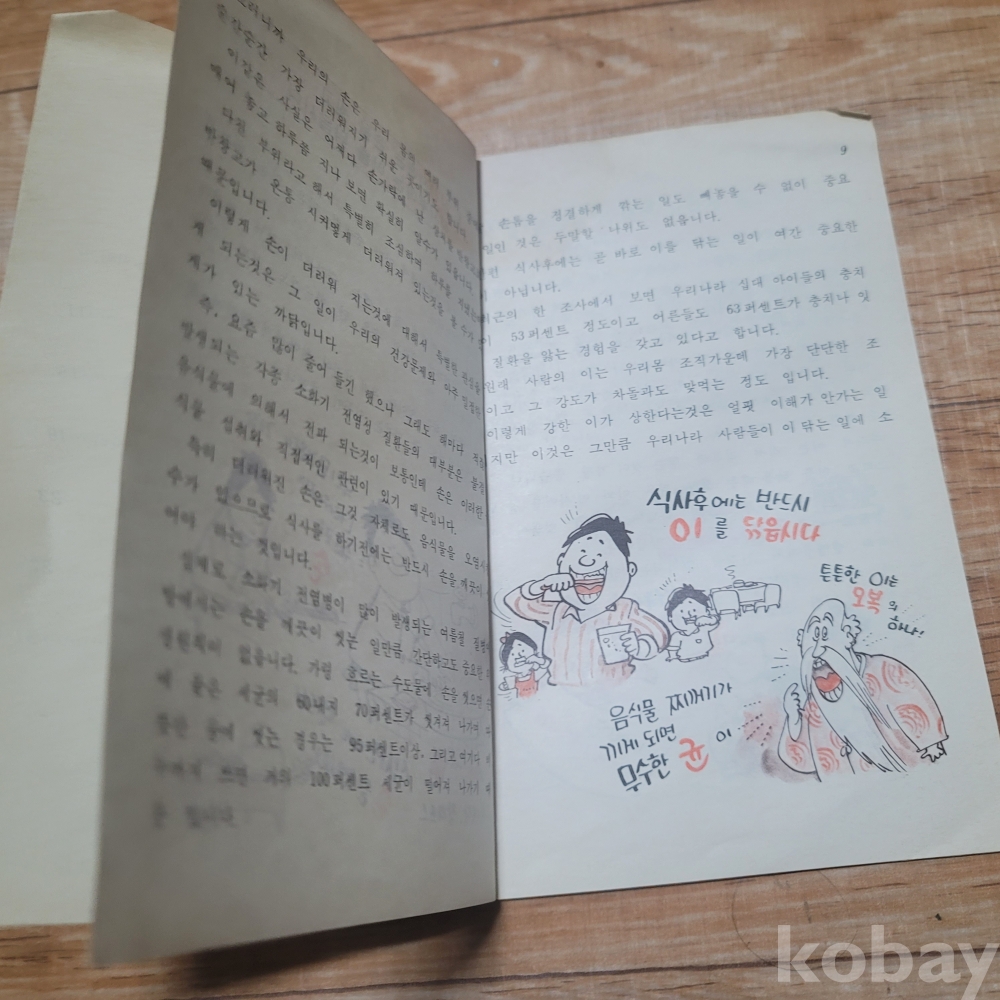 우리의 손은 우리 몸의
순간순간 가장 더러워지기 쉬운 곳이기도 합니다
이같은 사실은 어쩌다 손가락에 난
매어 놓고 하루쯤 지나 보면 확실히 알수가 있읍니다.
다친 부위라고 해서 특별히 조심하며 하루를 지냈는데
반창고가 온통 시커멓게 더러워져 있는것을 볼 수가
때문입니다.
이렇게 손이 더러워 지는것에 대해서 특별한 관심을
게 되는것은 그 일이 우리의 건강문제와 아주 밀접한
계가 있는 까닭입니다.
즉, 요즘 많이 줄어 들긴 했으나 그래도 해마다
발생되는 각종 소화기 전염성 질환들의 대부분은 불결
음식물에 의해서 전파 되는것이 보통인데 손은 이러한
식물 섭취와 직접적인 관련이 있기 때문입니다.
특히 더러워진 손은 그것 자체로도 음식물을 오염시
수가 있으므로 식사를 하기전에는 반드시 손을 깨끗이
어야 하는 것입니다.
실제로 소화기 전염병이 많이 발생되는 여름철 질병
방에서는 손을 깨끗이 씻는 일만큼 간단하고도 중요한
생원칙이 없읍니다. 가령 흐르는 수도물에 손을 씻으면
에 묻은 세균의 60내지 70퍼센트가 씻겨져 나가며
물에 씻는 경우는 95퍼센트이상, 그리고 여기다
쓰면 거의 100퍼센트 세균이 떨어져 나가기
9
손톱을 정결하게 깎는 일도 빼놓을 수 없이 중요
일인 것은 두말할 나위도 없읍니다.
식사후에는 곧 바로 이를 닦는 일이 여간 중요한
아닙니다.
최근의 한 조사에서 보면 우리나라 십대 아이들의 충치
53퍼센트 정도이고 어른들도 63퍼센트가 충치나 잇
질환을 앓는 경험을 갖고 있다고 합니다.
원래 사람의 이는 우리몸 조직가운데 가장 단단한 조
이고 그 강도가 차돌과도 맞먹는 정도 입니다.
이렇게 강한 이가 상한다는것은 얼핏 이해가 안가는 일
지만 이것은 그만큼 우리나라 사람들이 이 닦는 일에 소
식사후에는 반드시
이를 닦읍시다
튼튼한 이는
오복의
하나!
음식물 찌꺼기가
끼게 되면
무수한 균이
kobay